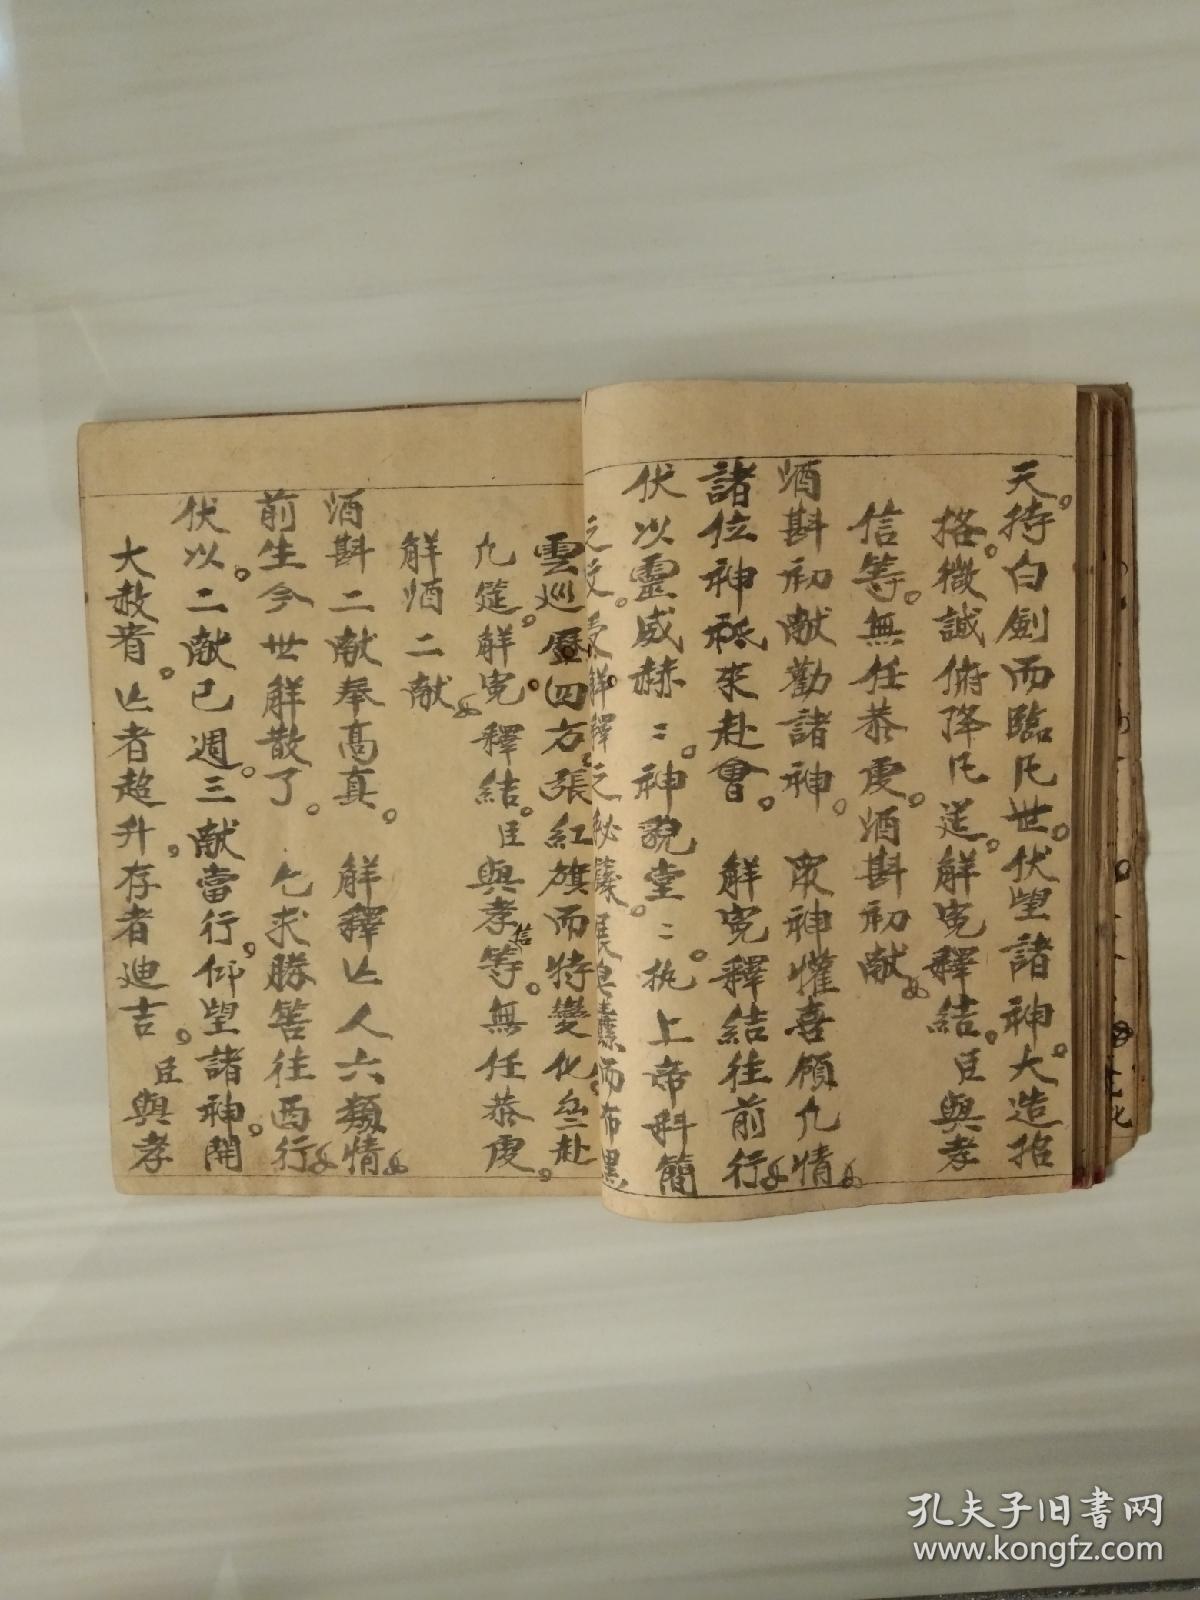 天。持白劍而臨凡世。伏望諸神。大造招
格。微誠俯降凡筵。解冤釋結。臣與孝
信等。無任恭虔。酒斟初献。
酒斟初献勸諸神。 眾神懽喜領凢情
諸位神祇來赴會。 解冤釋結往前行
伏以靈威赫〻。神貌堂〻。执上帝斜簡
之文。受解釋之秘籙。展皂纛而布黑
雲巡歷四方。張紅旗而特變化。
凢筵。解冤釋結。臣與孝信等。無任恭虔。
解酒二献。
酒斟二献奉高真。 解釋亾人六類情
前生今世解散了。 乞求勝筶往西行
伏以。二献已週。三献當行。仰望諸神。開
大赦宥。亾者超升。存者迪吉。臣與孝
孔夫子旧书网
www.kongfz.com